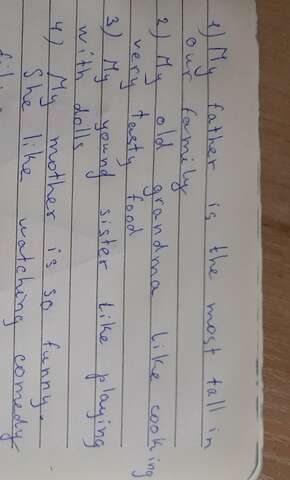 1) My father is the most tall in
our family
2) My old grandma like cooking
very tasty food
3) My young sister like playing
with dolls
4) My mother is so funny.
She like watching comedy